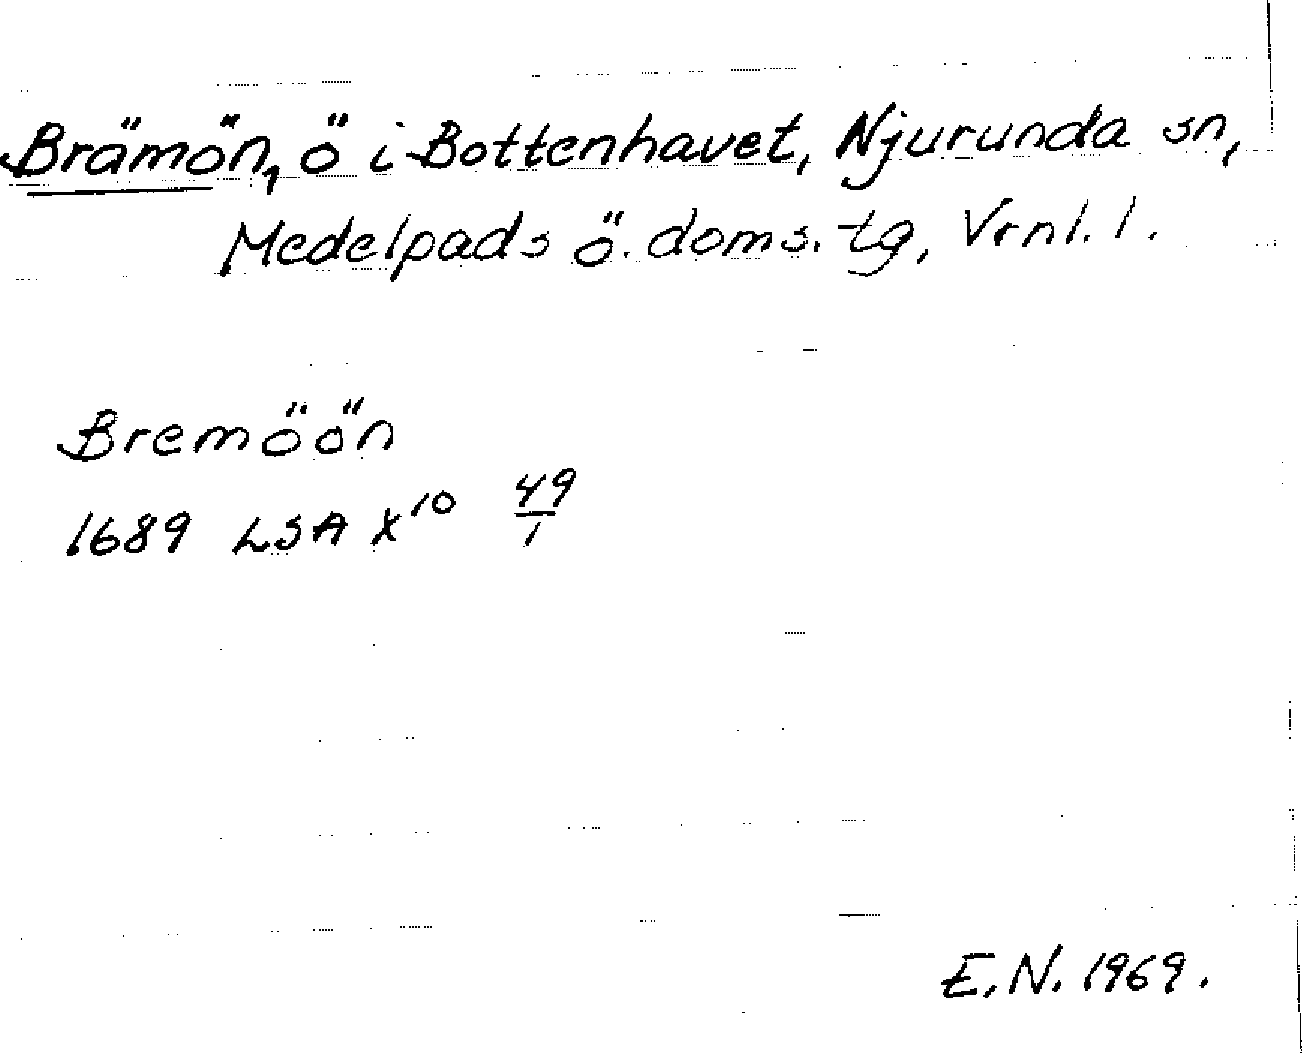 Brämön, ö i Bottenhavet, Njurunda sn,
Medelpads ö. doms. tg, Vrnl. l.
Bremöön
1689 LSA X¹⁰ 49/1
E.N. 1969.